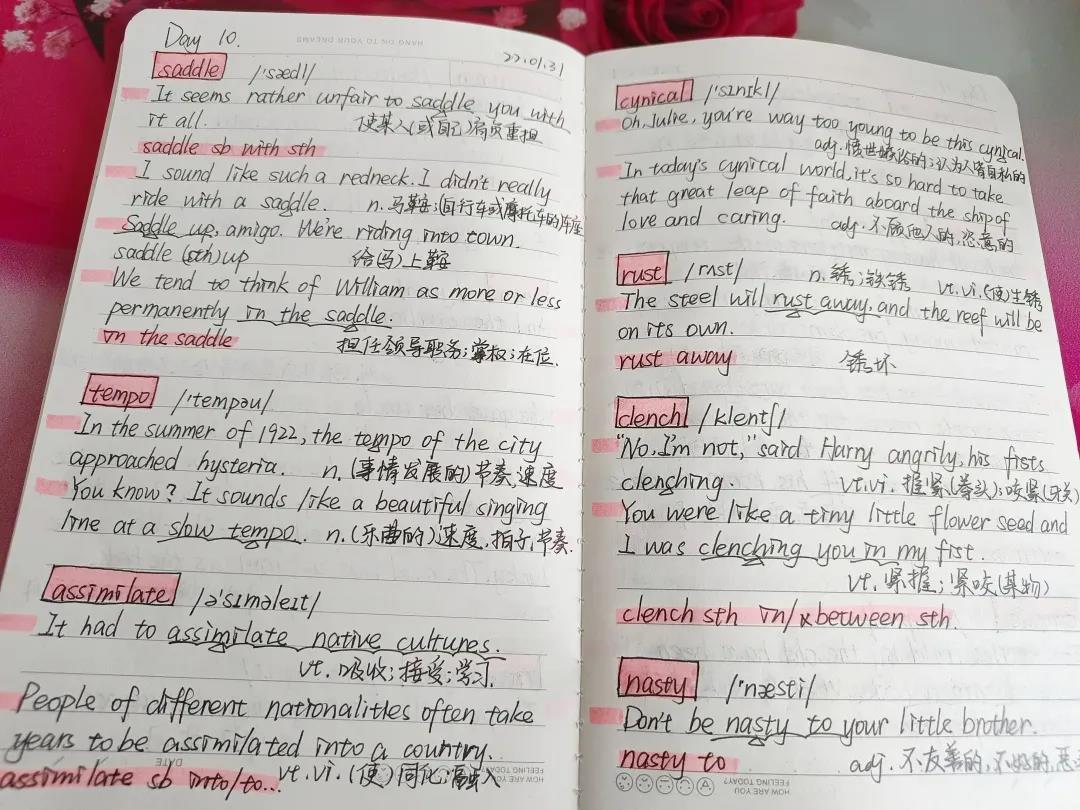 Day 10.
HANG ON TO YOUR DREAMS
22.01.31
saddle /'sædl/
It seems rather unfair to saddle you with
it all. 使某人(或自己)肩负重担
saddle sb with sth
I sound like such a redneck. I didn't really
ride with a saddle. n. 马鞍;自行车或摩托车的车座
Saddle up, amigo. We're riding into town.
saddle (sth) up 给(马)上鞍
We tend to think of William as more or less
permanently in the saddle.
in the saddle 担任领导职务;掌权;在位.
tempo /'tempəu/
In the summer of 1922, the tempo of the city
approached hysteria. n. (事情发展的)节奏,速度
You know? It sounds like a beautiful singing
line at a slow tempo. n. (乐曲的)速度,拍子,节奏.
assimilate /ə'sɪməleɪt/
It had to assimilate native cultures.
vt. 吸收;接受;学习.
People of different nationalities often take
years to be assimilated into a country.
DATE
assimilate sb into/to... vt. vi. (使)同化;融入
HOW ARE YOU
FEELING TODAY?
cynical /'sɪnɪkl/
Oh, Julie, you're way too young to be this cynical.
adj. 愤世嫉俗的;认为人皆自私的
In today's cynical world, it's so hard to take
that great leap of faith aboard the ship of
love and caring. adj. 不顾他人的,恣意的
rust /rʌst/ n. 锈;铁锈 vt. vi. (使)生锈
The steel will rust away, and the reef will be
on its own.
rust away 锈坏
clench /klentʃ/
"No, I'm not," said Harry angrily, his fists
clenching. vt. vi. 握紧(拳头);咬紧(牙关)
You were like a tiny little flower seed and
I was clenching you in my fist.
vt. 紧握;紧咬(某物)
clench sth in/between sth.
nasty /'næsti/
Don't be nasty to your little brother.
nasty to adj. 不友善的,不好的,
HOW ARE YOU
FEELING TODAY?